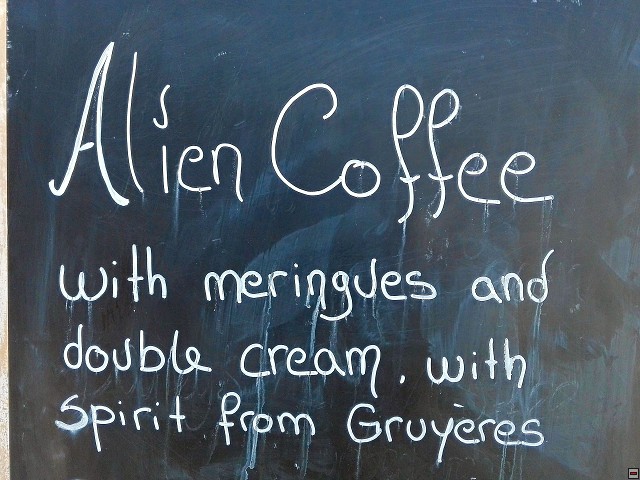 Alien Coffee
with meringues and
double cream, with
spirit from Gruyères